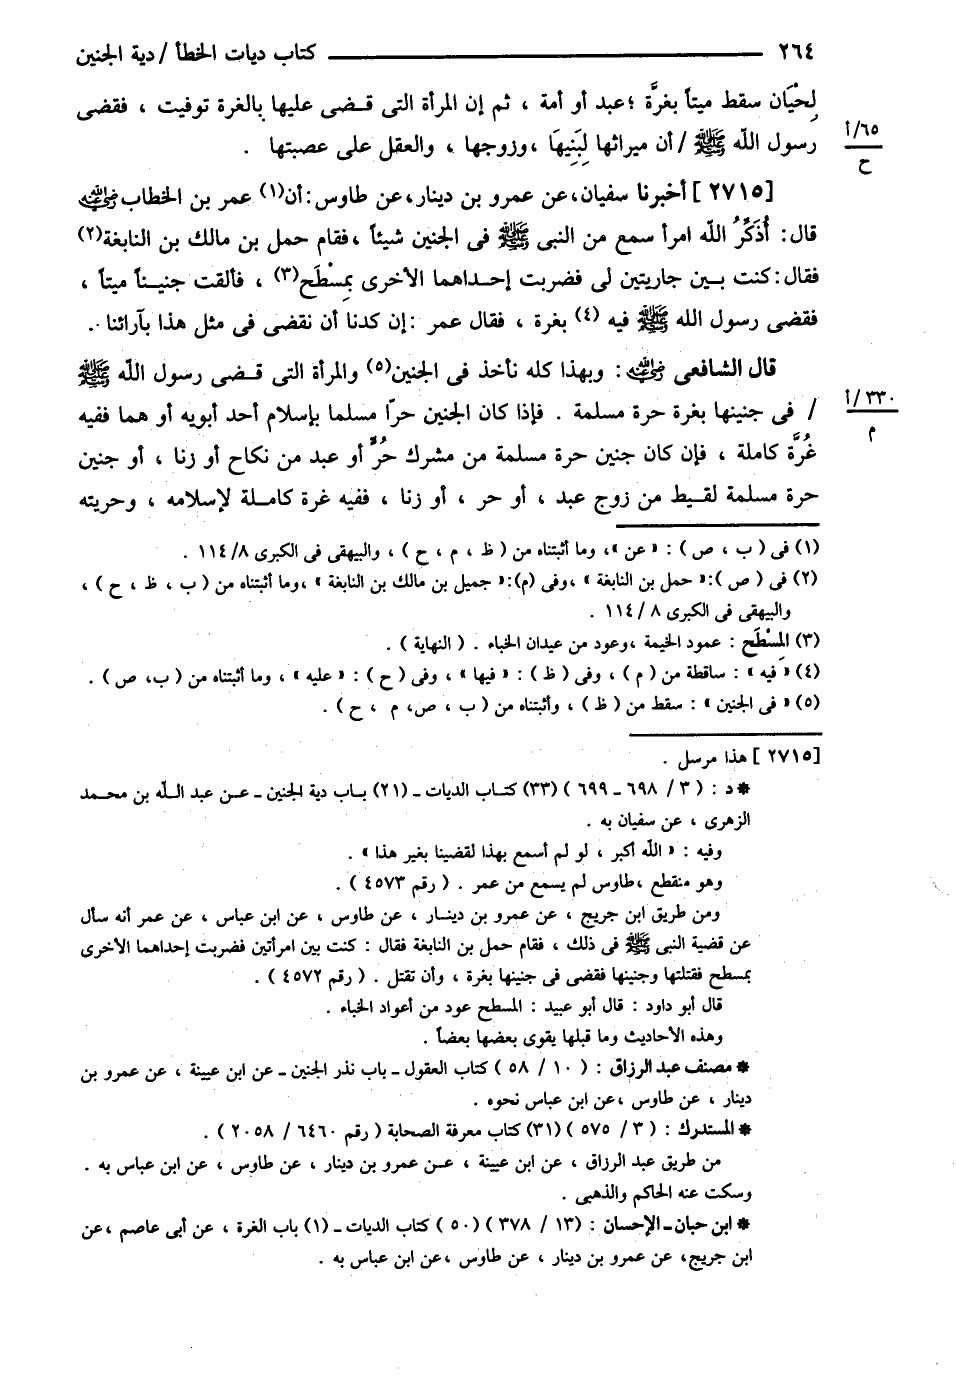 ٢٦٤ ــــــــــــــــ كتاب ديات الخطأ / دية الجنين
لِحْيَان سقط ميتاً بغرَّة ؛عبد أو أمة ، ثم إن المرأة التى قـضى عليها بالغرة توفيت ، فقضى
رسول الله ﷺ / أن ميراثها لِبَنِيهَا ،وزوجها ، والعقل على عصبتها .
٦٥/أ
ح
[ ٢٧١٥ ] أخبرنا سفيان،عن عمرو بن دينار،عن طاوس :أن(١) عمر بن الخطاب رضي الله عنه
قال: أُذَكِّرُ الله امرأ سمع من النبى ﷺ فى الجنين شيئاً ،فقام حمل بن مالك بن النابغة(٢)
فقال:كنت بـين جاريتين لى فضربت إحـداهما الأخرى بِمِسْطَح(٣) ، فألقت جنيـناً ميتاً ،
فقضى رسول الله ﷺ فيه (٤) بغرة ، فقال عمر :إن كدنا أن نقضى فى مثل هذا بآرائنا .
قال الشافعى رضي الله عنه : وبهذا كله نأخذ فى الجنين(٥) والمرأة التى قـضى رسول الله ﷺ
/ فى جنينها بغرة حرة مسلمة . فإذا كان الجنين حرّا مسلما بإسلام أحد أبويه أو هما ففيه
٣٣٠/أ
م
غُرَّة كاملة ، فإن كان جنين حرة مسلمة من مشرك حُرٍّ أو عبد من نكاح أو زنا ، أو جنين
حرة مسلمة لقـيط من زوج عبد ، أو حر ، أو زنا ، ففيه غرة كامـلة لإسلامه ، وحريته
(١) فى ( ب ، ص ) : « عن »، وما أثبتناه من ( ظ ، م ، ح ) ، والبيهقى فى الكبرى ٨/ ١١٤ .
(٢) فى ( ص ):« حمل بن النابغة » ،وفى (م):« جميل بن مالك بن النابغة » ،وما أثبتناه من ( ب ، ظ ، ح ) ،
والبيهقى فى الكبرى ٨ / ١١٤ .
(٣) المِسْطَح : عمود الخيمة ،وعود من عيدان الخباء . ( النهاية ) .
(٤) « فيه » : ساقطة من ( م ) ، وفى ( ظ ) : « فيها » ، وفى ( ح ) : « عليه » ، وما أثبتناه من ( ب، ص ) .
(٥) « فى الجنين » : سقط من ( ظ ) ، وأثبتناه من ( ب ، ص، م ، ح ) .
[ ٢٧١٥ ] هذا مرسل .
* د : ( ٣ / ٦٩٨ ـ ٦٩٩ ) (٣٣) كتـاب الديات ـ (٢١) بـاب دية الجنين ـ عـن عبد اللـه بن محـمد
الزهرى ، عن سفيان به .
وفيه : « الله أكبر ، لو لم أسمع بهذا لقضينا بغير هذا » .
وهو منقطع ،طاوس لم يسمع من عمر . ( رقم ٤٥٧٣ ) .
ومن طريق ابن جريج ، عن عمرو بن دينـار ، عن طاوس ، عن ابن عباس ، عن عمر أنه سأل
عن قضية النبى ﷺ فى ذلك ، فقام حمل بن النابغة فقال : كنت بين امرأتين فضربت إحداهما الأخرى
بمسطح فقتلتها وجنينها فقضى فى جنينها بغرة ، وأن تقتل . ( رقم ٤٥٧٢ ) .
قال أبو داود : قال أبو عبيد : المسطح عود من أعواد الخباء .
وهذه الأحاديث وما قبلها يقوى بعضها بعضاً .
* مصنف عبد الرزاق : ( ١٠ / ٥٨ ) كتاب العقول ـ باب نذر الجنين ـ عن ابن عيينة ، عن عمرو بن
دينار ، عن طاوس ،عن ابن عباس نحوه .
* المستدرك : ( ٣ / ٥٧٥ ) (٣١) كتاب معرفة الصحابة ( رقم ٦٤٦٠ / ٢٠٥٨ ) .
من طريق عبد الرزاق ، عن ابن عيينة ، عـن عمرو بن دينار ، عن طاوس ، عن ابن عباس به .
وسكت عنه الحاكم والذهبى .
* ابن حبان ـ الإحسان : (١٣ / ٣٧٨ ) ( ٥٠ ) كتاب الديات ـ (١) باب الغرة ، عن أبى عاصم ،عن
ابن جريج، عن عمرو بن دينار ، عن طاوس ،عن ابن عباس به .